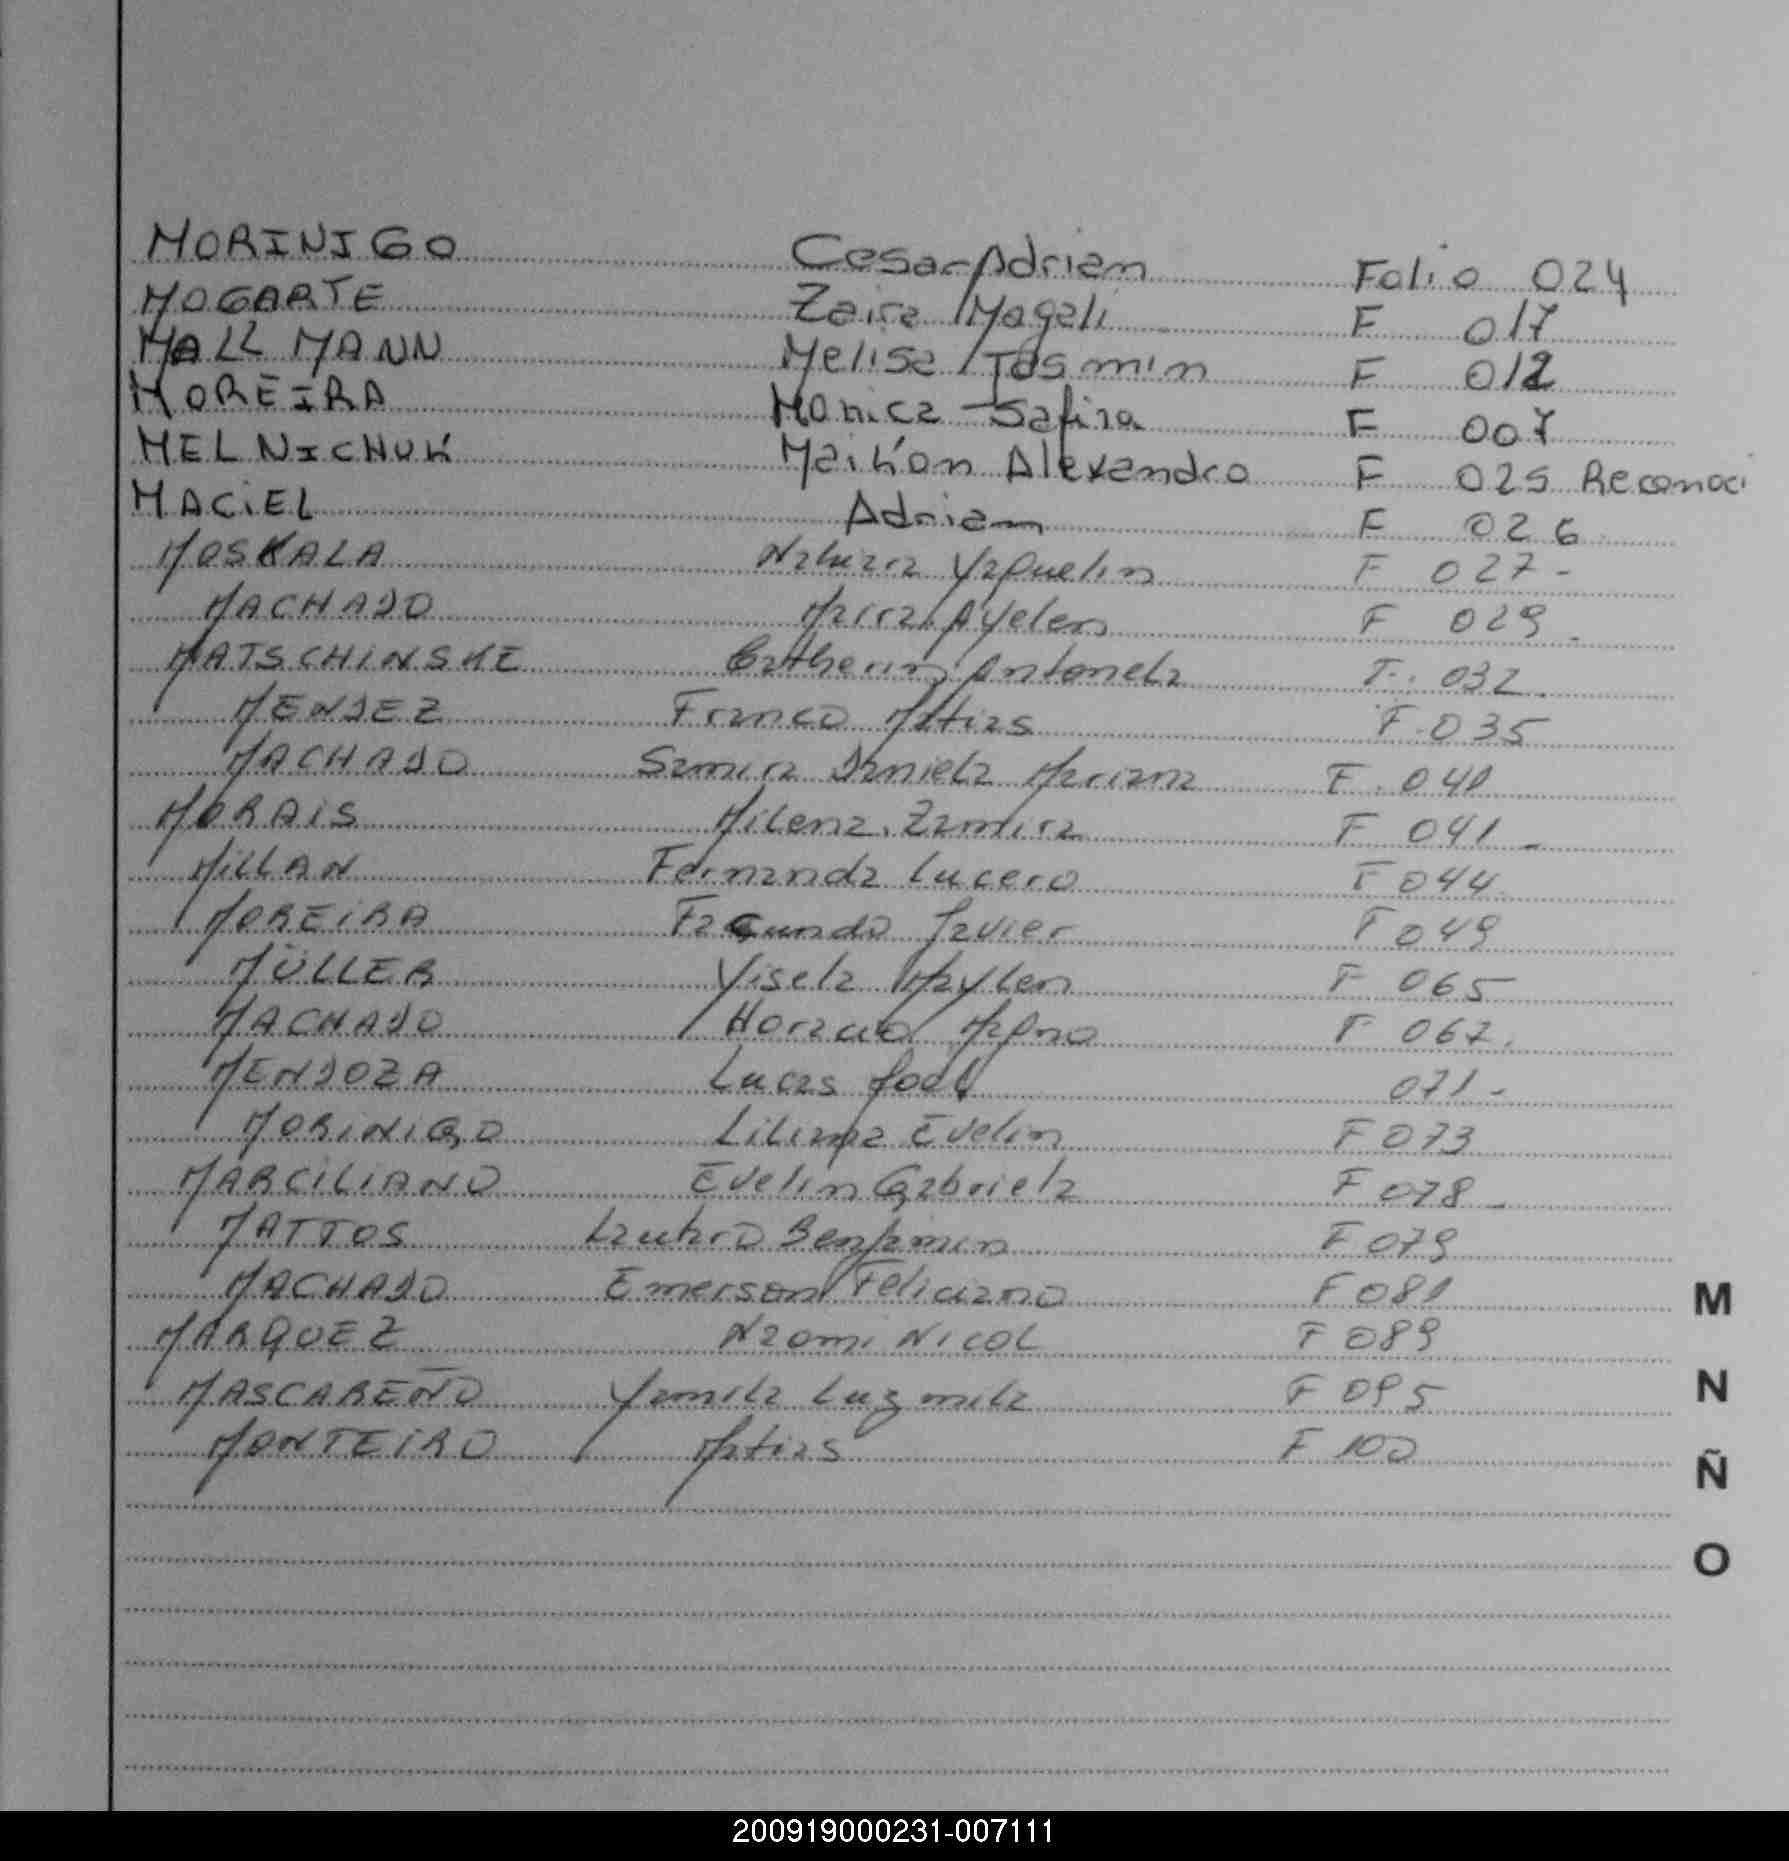 MORINIGO Cesar Adrian Folio 024
MOGARTE Zaira Magali F 017
MALLMANN Melisa Jasmin F 012
MOREIRA Monica Safira F 007
MELNICHUK Maikon Alexandro F 025 Reconoci
MACIEL Adrian F 026
MOSKALA Nahiara Yaquelin F 027-
MACHADO Maira Ayelen F 029
MATSCHINSKE Catherin Antonela F. 032
MENDEZ Franco Matias F.035
MACHADO Samira Daniela Mariana F. 040
MORAIS Milena Zamira F 041
MILLAN Fernanda Lucero F 044
MOREIRA Facundo Javier F 049
MÜLLER Yisela Maylen F 065
MACHADO Horacio Magno F 067.
MENDOZA Lucas Joel 071-
MORINIGO Liliana Evelin F 073
MARCILIANO Evelin Gabriela F 078
MATTOS Lautaro Benjamin F 079
MACHADO Emerson Feliciano F 081
MARQUEZ Naomi Nicol F 089
MASCAREÑO Yamila Luz mila F 095
MONTEIRO Matias F 100
M
N
Ñ
O
200919000231-007111